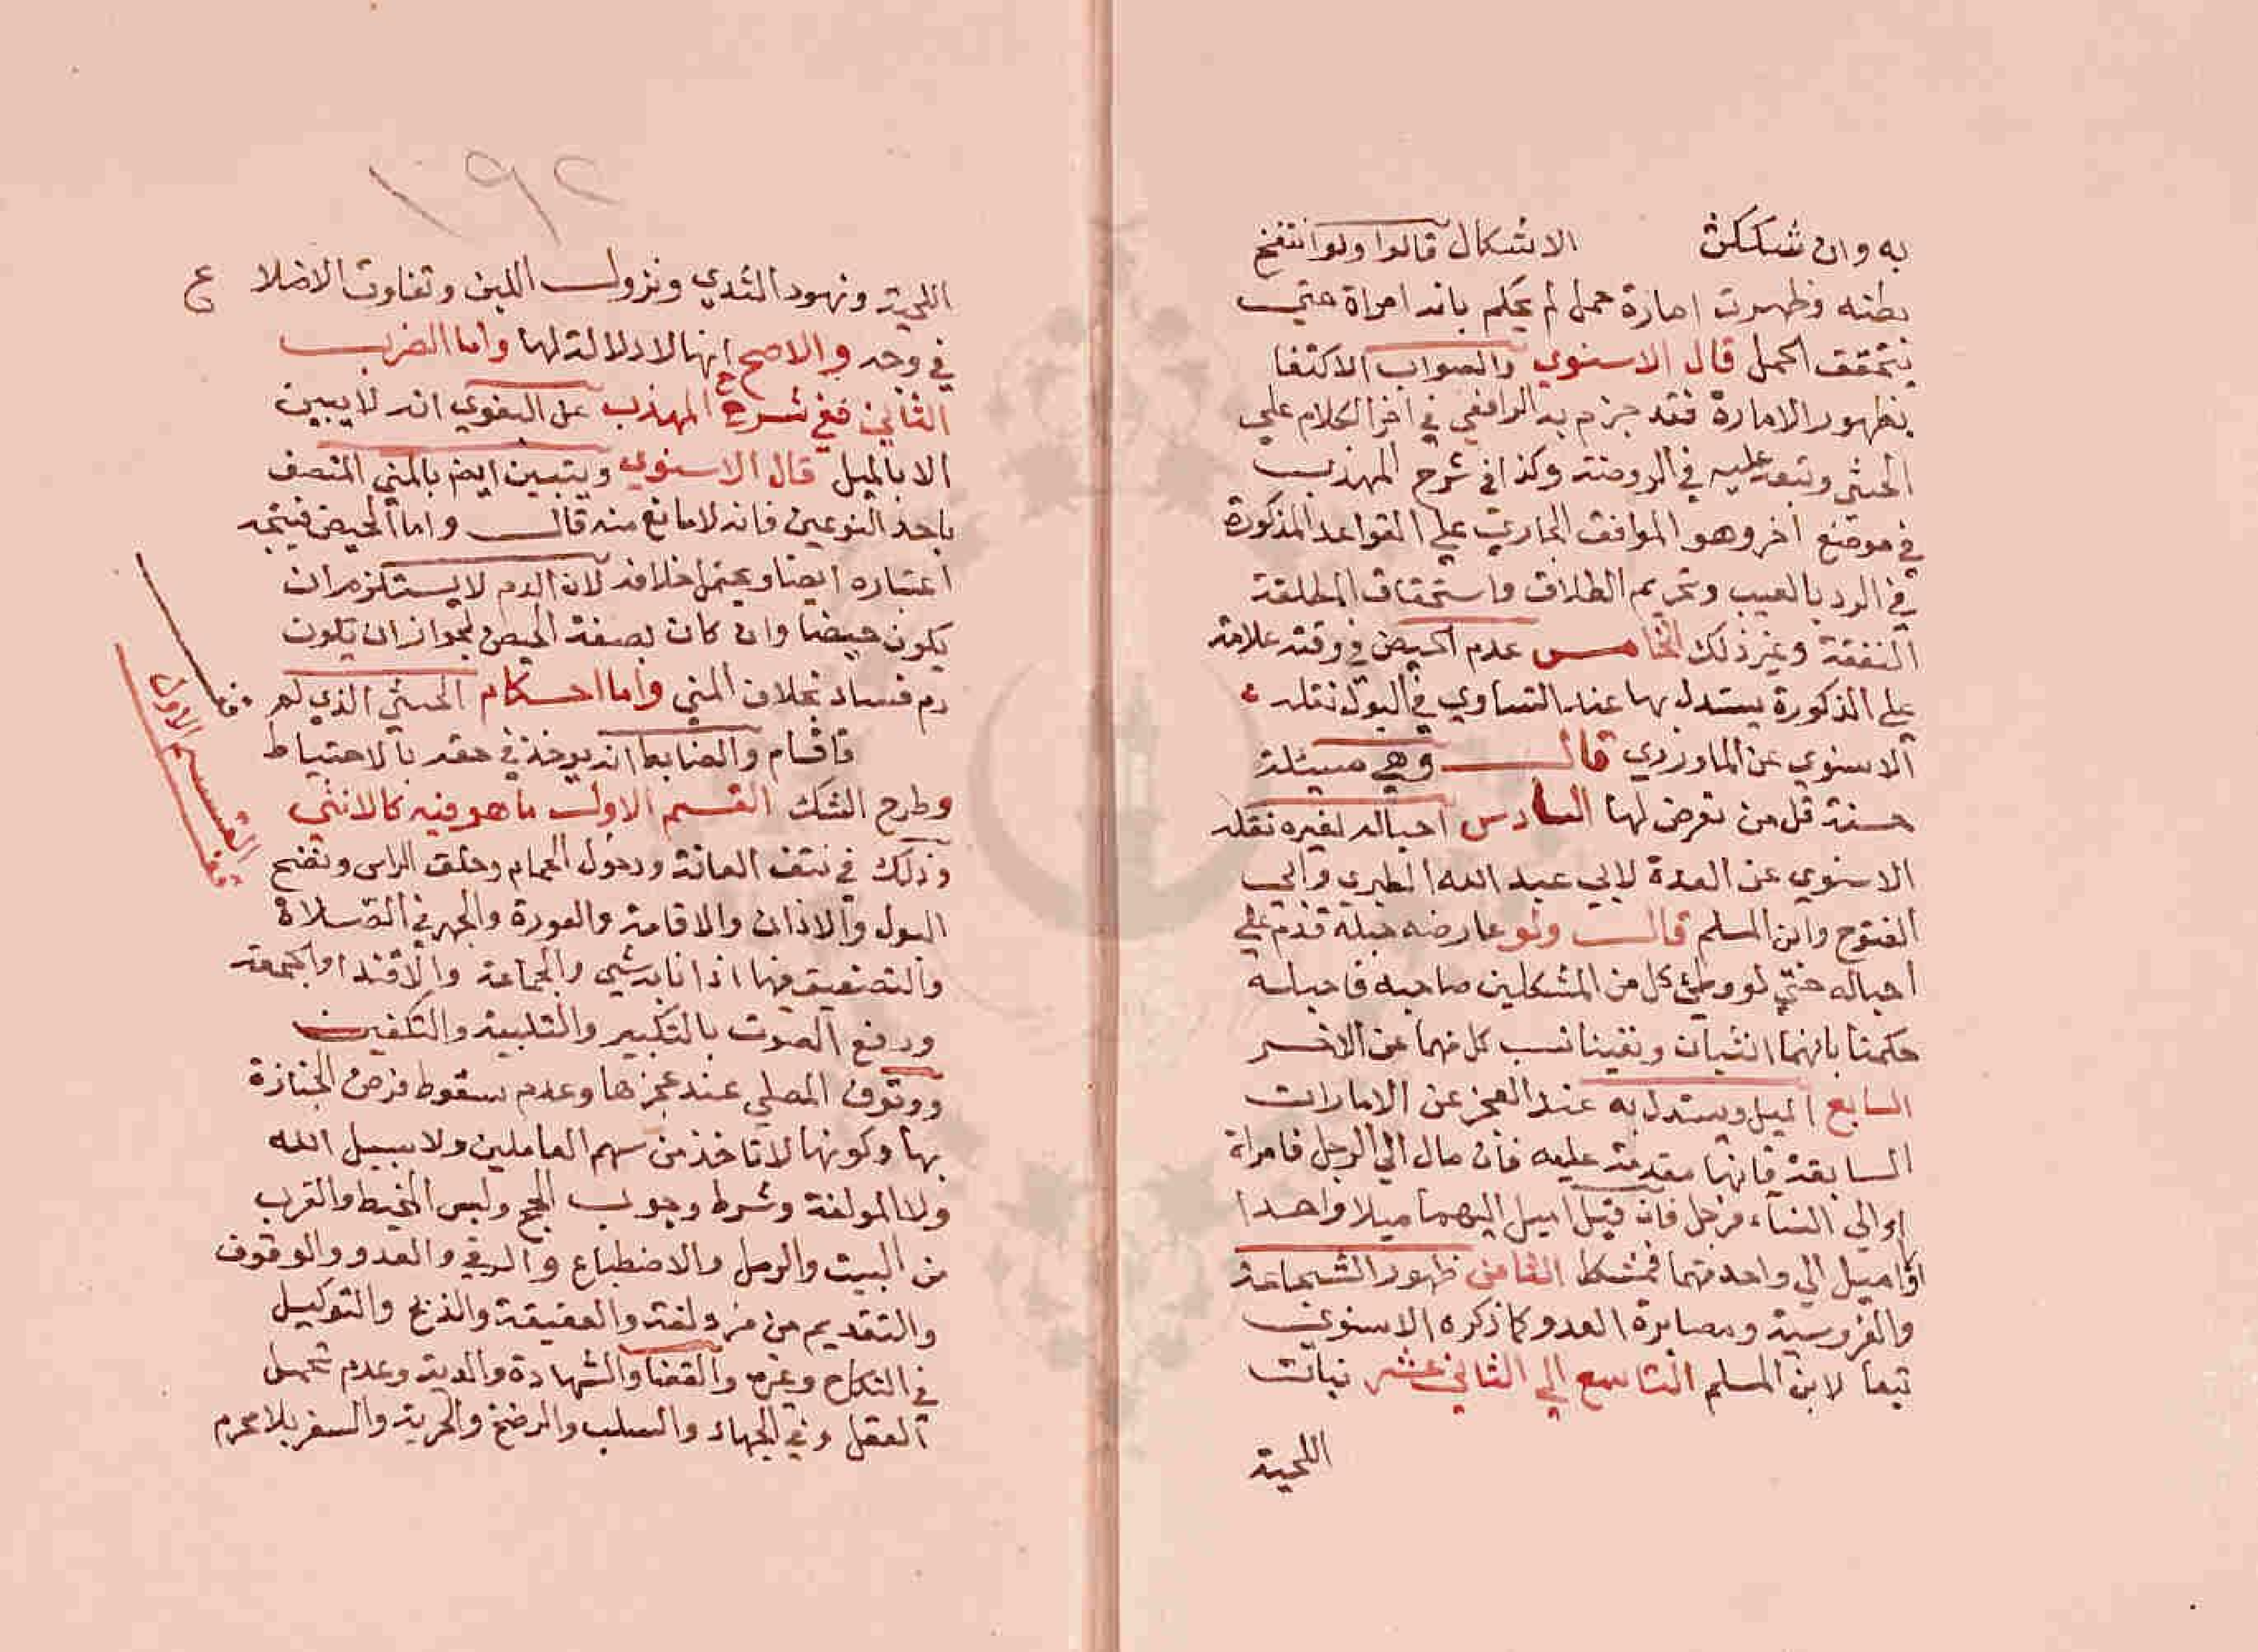 به وان شككن الاشكال قالوا ولو انتفخ
بطنه وظهرت امارة حمل لم يحكم بانه امراة حتي
يتحقق الحمل قال الاسنوي والصواب الاكتفا
بظهور الامارة فقد جزم به الرافعي في اخر الكلام علي
الخنثي وتبعه عليه في الروضة وكذا في شرح المهذب
في موضع اخر وهو الموافق الجاري علي القواعد المذكورة
في الرد بالعيب وتحريم الطلاق واستحقاق المطلقة
النفقة وغير ذلك الخامس عدم الحيض في وقته علامة
علي الذكورة يستدل بها عند التساوي في البول نقله
الاسنوي عن الماوردي قال وهي مسئلة
حسنة قل من تعرض لها السادس احباله لغيره نقله
الاسنوي عن العدة لابي عبد الله الطبري وابي
الفتوح وابن المسلم قال ولو عارضه حبله قدم علي
احباله حتي لو وطئ كل من المشكلين صاحبه فاحبله
حكمنا بانهما انثيان ونفينا نسب كل منهما عن الاخر
السابع الميل ويستدل به عند العجز عن الامارات
السابقة فانها مقدمة عليه فان مال الي الرجل فامراة
او الي النساء فرجل فان قيل اميل اليهما ميلا واحدا
او لا اميل الي واحد منهما فمشكل الثامن ظهور الشجاعة
والفروسية ومصابرة العدو كما ذكره الاسنوي
تبعا لابن المسلم التاسع الي الثاني عشر نبات
اللحية
١٩٢
اللحية ونهود الثدي ونزول اللبن وتفاوت الاضلا ع
في وجه والاصح انها لا دلالة لها واما الضرب
الثاني ففي شرح المهذب عن البغوي انه لا يبين
الا بالميل قال الاسنوي ويتبين ايض بالمني المتصف
باحد النوعين فانه لا مانع منه قال واما الحيض فيتجه
اعتباره ايضا ويحتمل خلافه لان الدم لا يستلزم ان
يكون حيضا وان كان بصفة الحيض لجواز ان يكون
دم فساد بخلاف المني واما احكام الخنثي الذي له
فاقسام والضابط انه يوخذ في حقه بالاحتياط
وطرح الشك القسم الاول ما هو فيه كالانثي
القسم الاول
وذلك في نتف العانة ودخول الحمام وحلق الراس ونضح
البول والاذان والاقامة والعورة والجهر في الصلاة
والتصفيق فيها اذا نابه شيي والجماعة والاقتدا والجمعة
ورفع الصوت بالتكبير والتلبية والتكفين
ووقوف المصلي عند عجزها وعدم سقوط فرض الجنازة
بها وكونها لا تاخذ من سهم العاملين ولا سبيل الله
ولا المولفة وشرط وجوب الحج ولبس المخيط والقرب
من البيت والرمل والاضطباع والرقي والعدو والوقوف
والتقديم من مزدلفة والعقيقة والذبح والتوكيل
في النكاح وغيره والقضا والشهادة والدية وعدم تحمل
العقل وفي الجهاد والسلب والرضخ والجزية والسفر بلا محرم